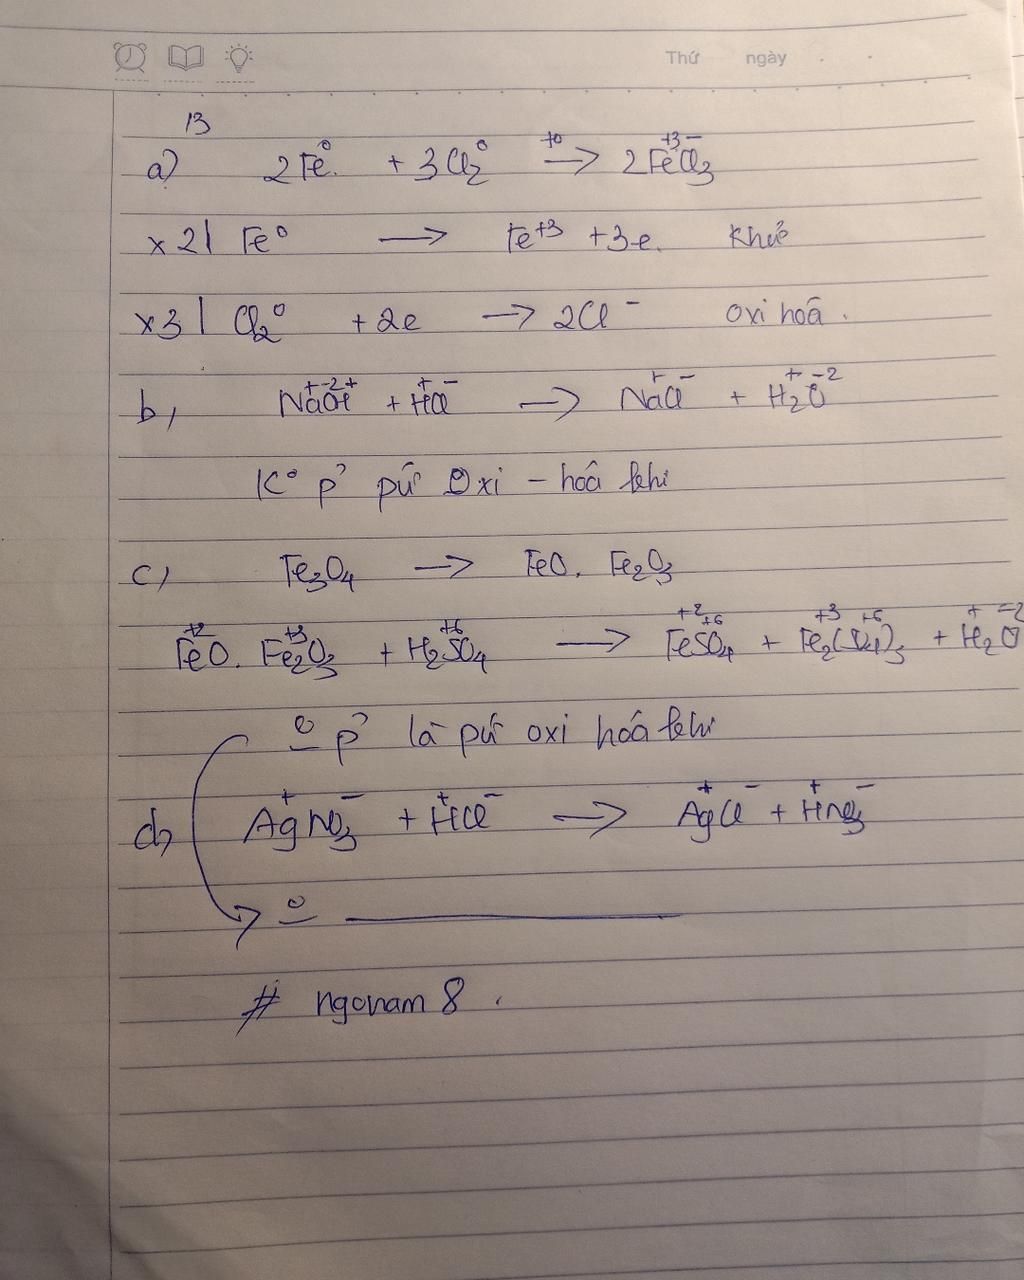 Thứ ngày
13
a) 2Fe⁰ + 3Cl₂⁰ –t⁰→ 2Fe⁺³Cl₃⁻
x2| Fe⁰ → Fe⁺³ + 3e. Khử
x3| Cl₂⁰ + 2e → 2Cl⁻ Oxi hoá.
b, Na⁺O⁻²H⁺ + H⁺Cl⁻ → Na⁺Cl⁻ + H₂⁺O⁻²
K⁰ p' pứ Oxi – hoá khử
c, Fe₃O₄ → FeO. Fe₂O₃
Fe⁺²O. Fe₂⁺³O₃ + H₂S⁺⁶O₄ → Fe⁺²S⁺⁶O₄ + Fe₂⁺³(S⁺⁶O₄)₃ + H₂⁺O⁻²
p' là pứ oxi hoá khử
d, Ag⁺NO₃⁻ + H⁺Cl⁻ → Ag⁺Cl⁻ + H⁺NO₃⁻
# ngonam 8.